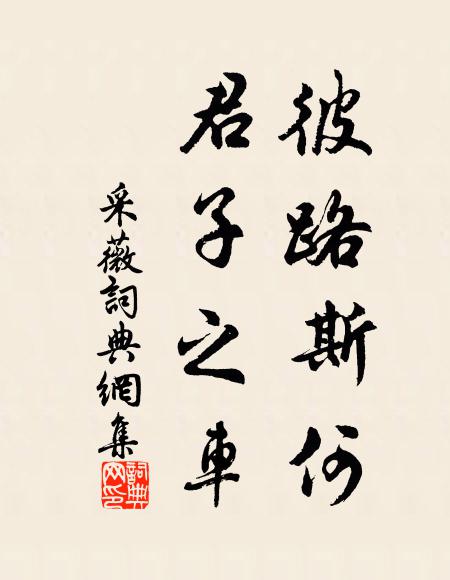 彼路斯何
君子之車
采薇詞典網集
詞典
网印